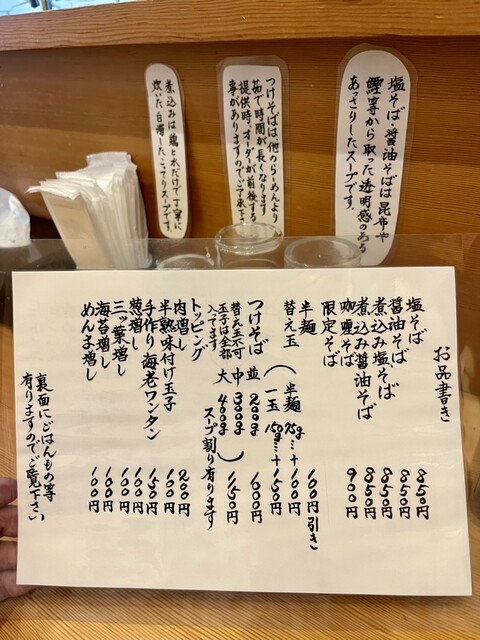 塩そば・醤油そばは昆布や
鰹等から取った透明感のある
あっさりしたスープです。
つけそばは、他のらーめんより
茹で時間が長くなります
提供時、オーダーが前後する
事がありますのでご了承下さい
煮込みは鶏と水だけで丁寧に
炊いた白濁したこってりスープです。
お品書き
塩そば 850円
醤油そば 850円
煮込み塩そば 850円
煮込み醤油そば 850円
咖喱そば 900円
限定そば
半麺 100円引き
替え玉(半麺 75g…+100円
一玉 150g…+150円
つけそば 並 200g 1000円
替え玉不可 中 300g 1150円
玉子は全部入ってます 大 400g
スープ割り有ります
トッピング
肉増し 200円
半熟味付け玉子 100円
手作り海老ワンタン 150円
葱増し 100円
三ッ葉増し 100円
海苔増し 100円
めんま増し 100円
裏面にごはんもの等
有りますのでご覧下さい